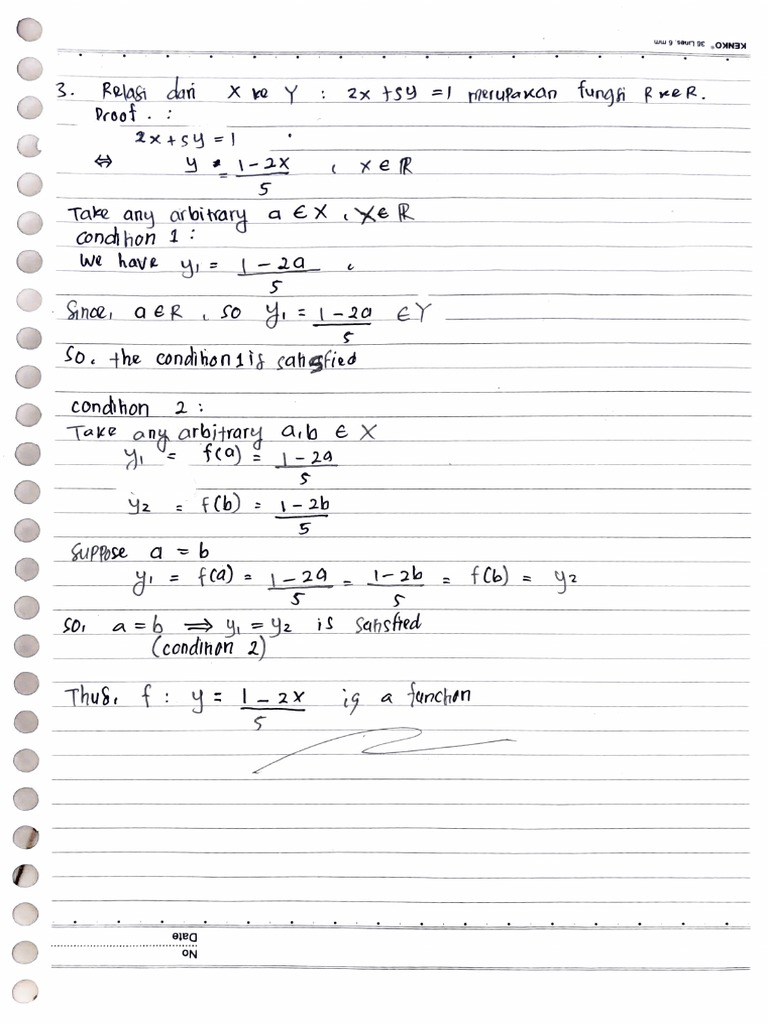 KENKO® 36 Lines, 6 mm
3. Relasi dari X ke Y : 2x + 5y = 1 merupakan fungsi R ke R.
Proof . :
2x + 5y = 1
⇔ y = 1 - 2x / 5 , x ∈ ℝ
Take any arbitrary a ∈ X , X ∈ ℝ
condition 1 :
We have y₁ = 1 - 2a / 5 ,
Since, a ∈ R , so y₁ = 1 - 2a / 5 ∈ Y
So, the condition 1 is satisfied
condition 2 :
Take any arbitrary a,b ∈ X
y₁ = f(a) = 1 - 2a / 5
y₂ = f(b) = 1 - 2b / 5
Suppose a = b
y₁ = f(a) = 1 - 2a / 5 = 1 - 2b / 5 = f(b) = y₂
So, a = b ⟹ y₁ = y₂ is satisfied
(condition 2)
Thus, f : y = 1 - 2x / 5 is a function
Date
No